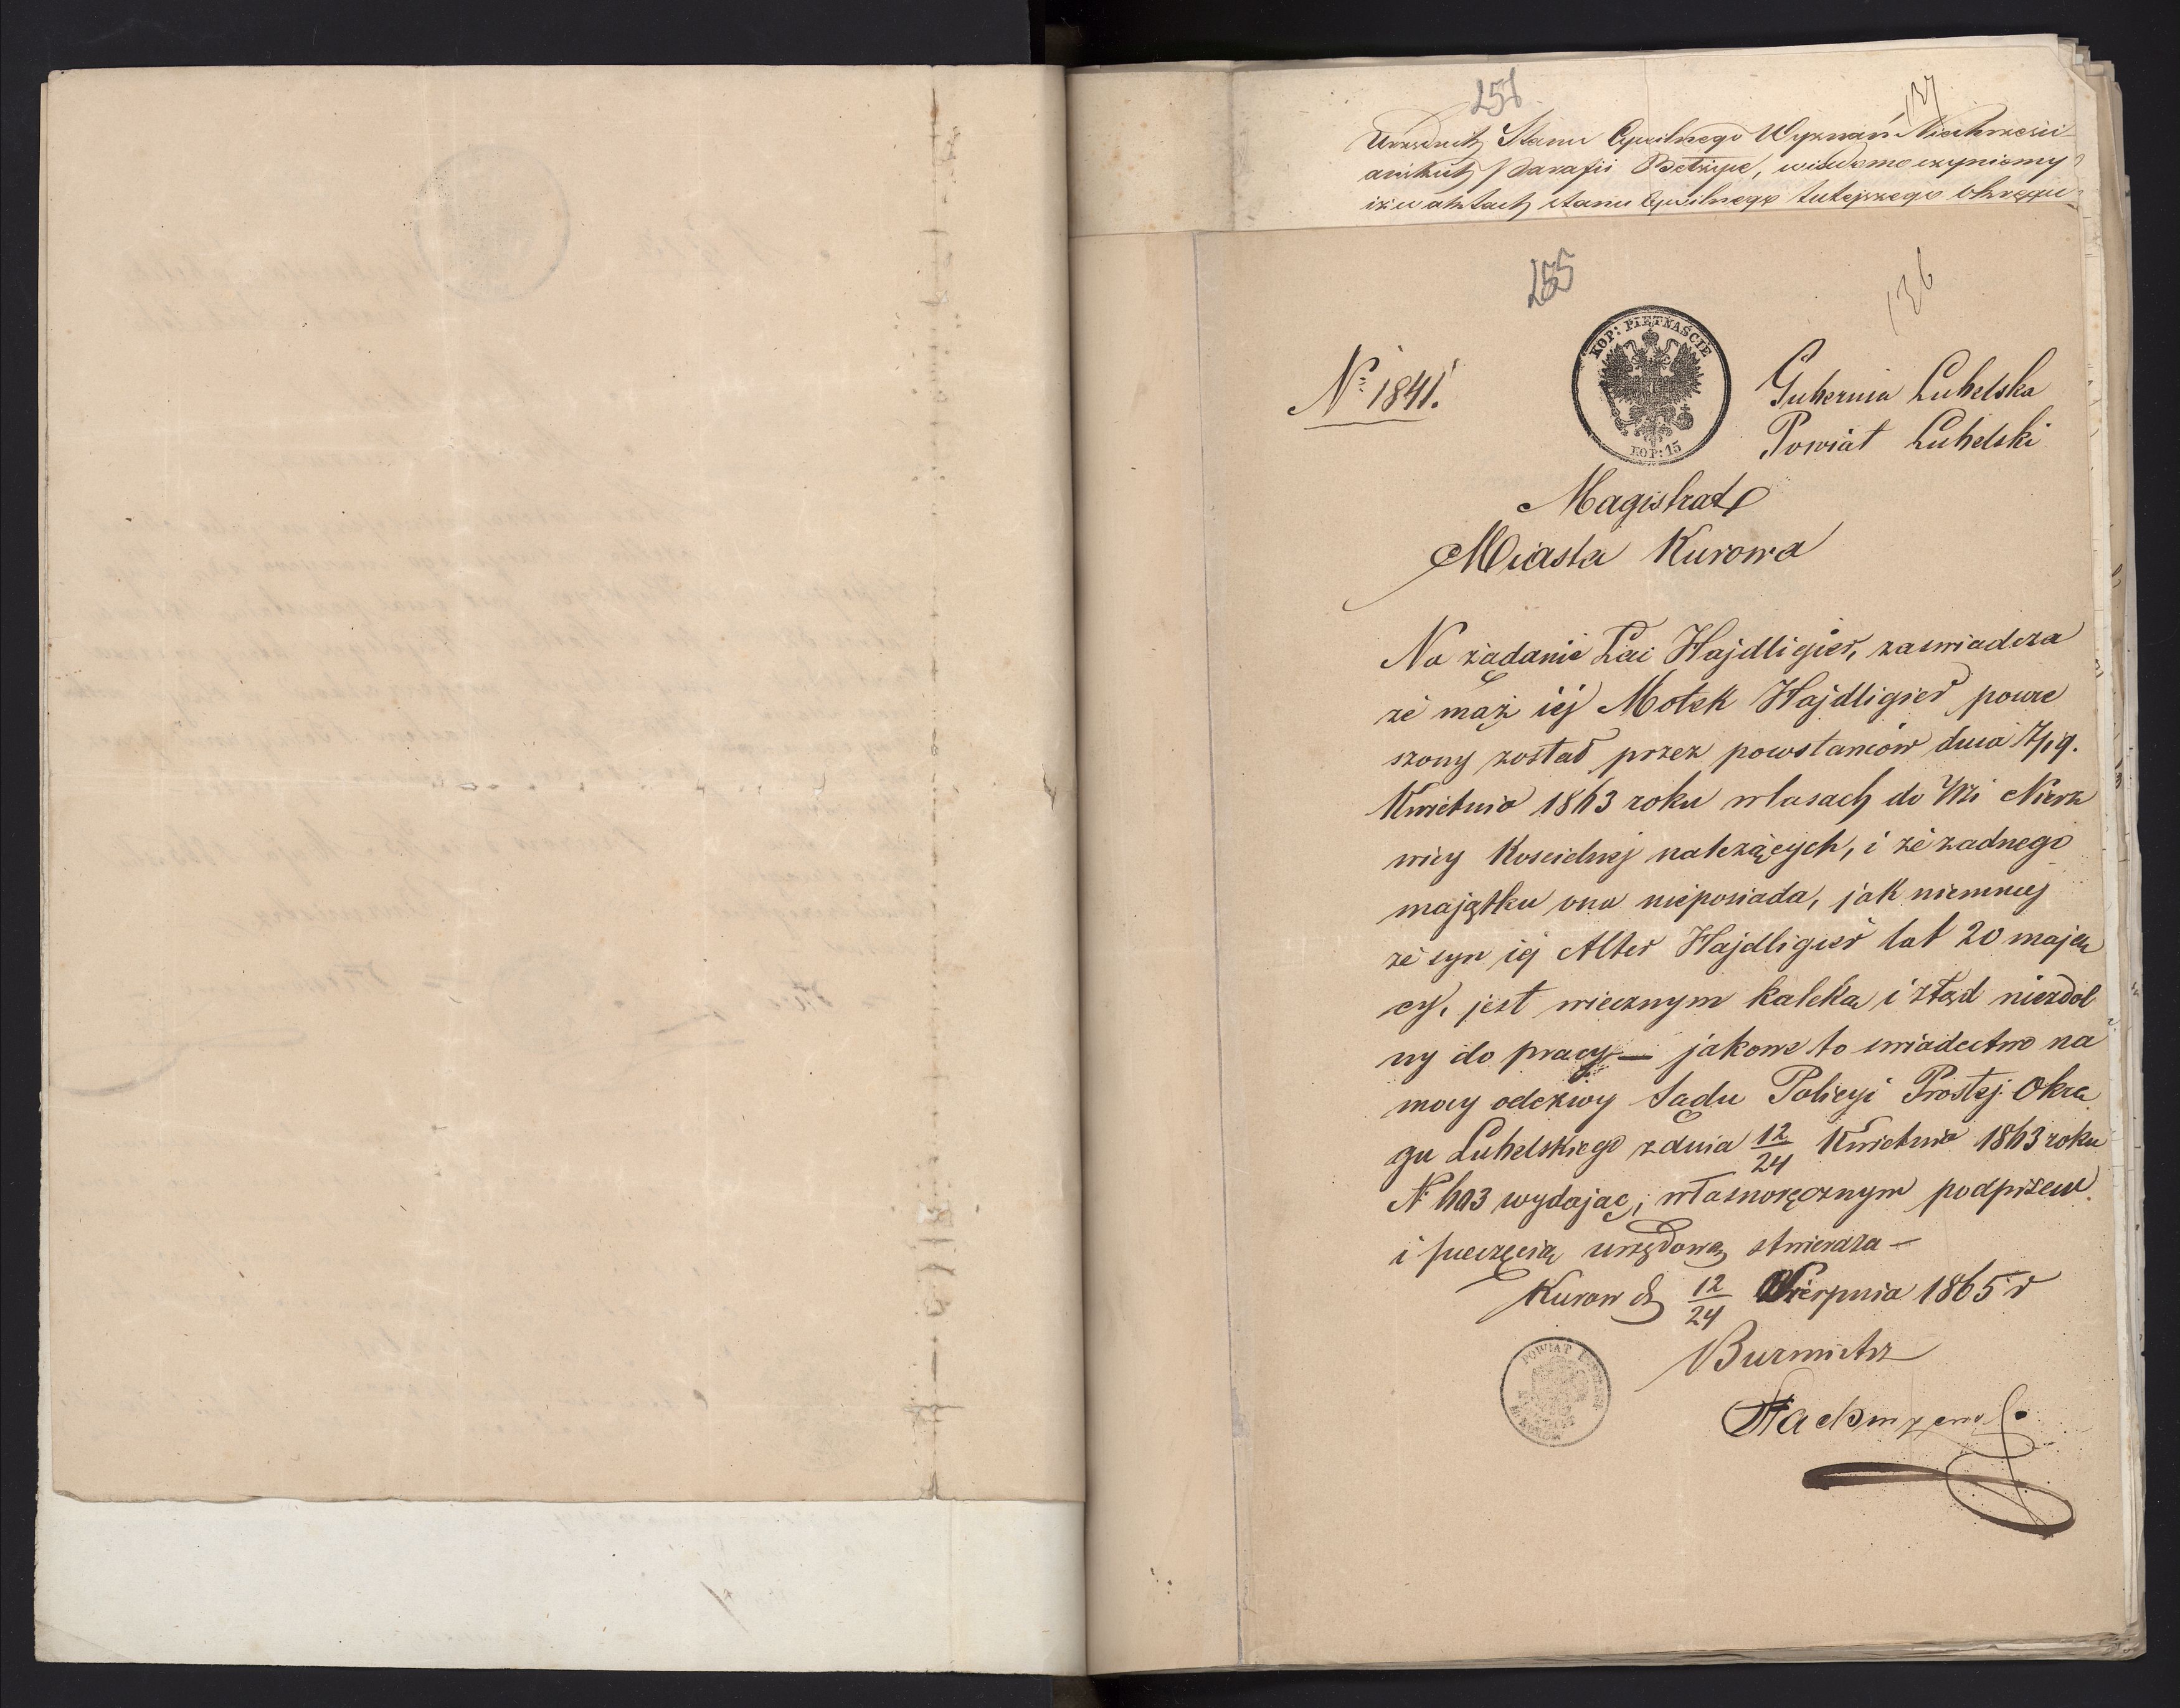 251
137
Urzędnik Stanu Cywilnego Wyznań Niechrześci
ańskich Parafii Bełżyce, wiadomo czyniemy
iż w aktach stanu Cywilnego tutejszego Okręgu
255
136
KOP: PIĘTNAŚCIE
KOP: 15
N: 1841.
Gubernia Lubelska
Powiat Lubelski
Magistrat
Miasta Kurowa
Na żądanie Łai Hajdligier, zaswiadcza
że mąż iéj Motek Hajdligier powie
szony został przez powstańców dnia 7/19.
Kwietnia 1863 roku w lasach do Wsi Niedrz
wicy Kościelnej należących, i że żadnego
majątku ona nieposiada, jak niemniej
że syn iéj Alter Hajdligier lat 20 mają
cy, jest wiecznym kaleką i ztąd niezdol
ny do pracy – jakowe to swiadectwo na
mocy odezwy Sądu Policyi Prostej Okrę
gu Lubelskiego z dnia 12/24 Kwietnia 1863 roku
N: 603 wydając, własnoręcznym podpisem
i pieczęcią urzędową stwierdza –
Kurow d. 12/24 Sierpnia 1865 r
Burmistrz
POWIAT